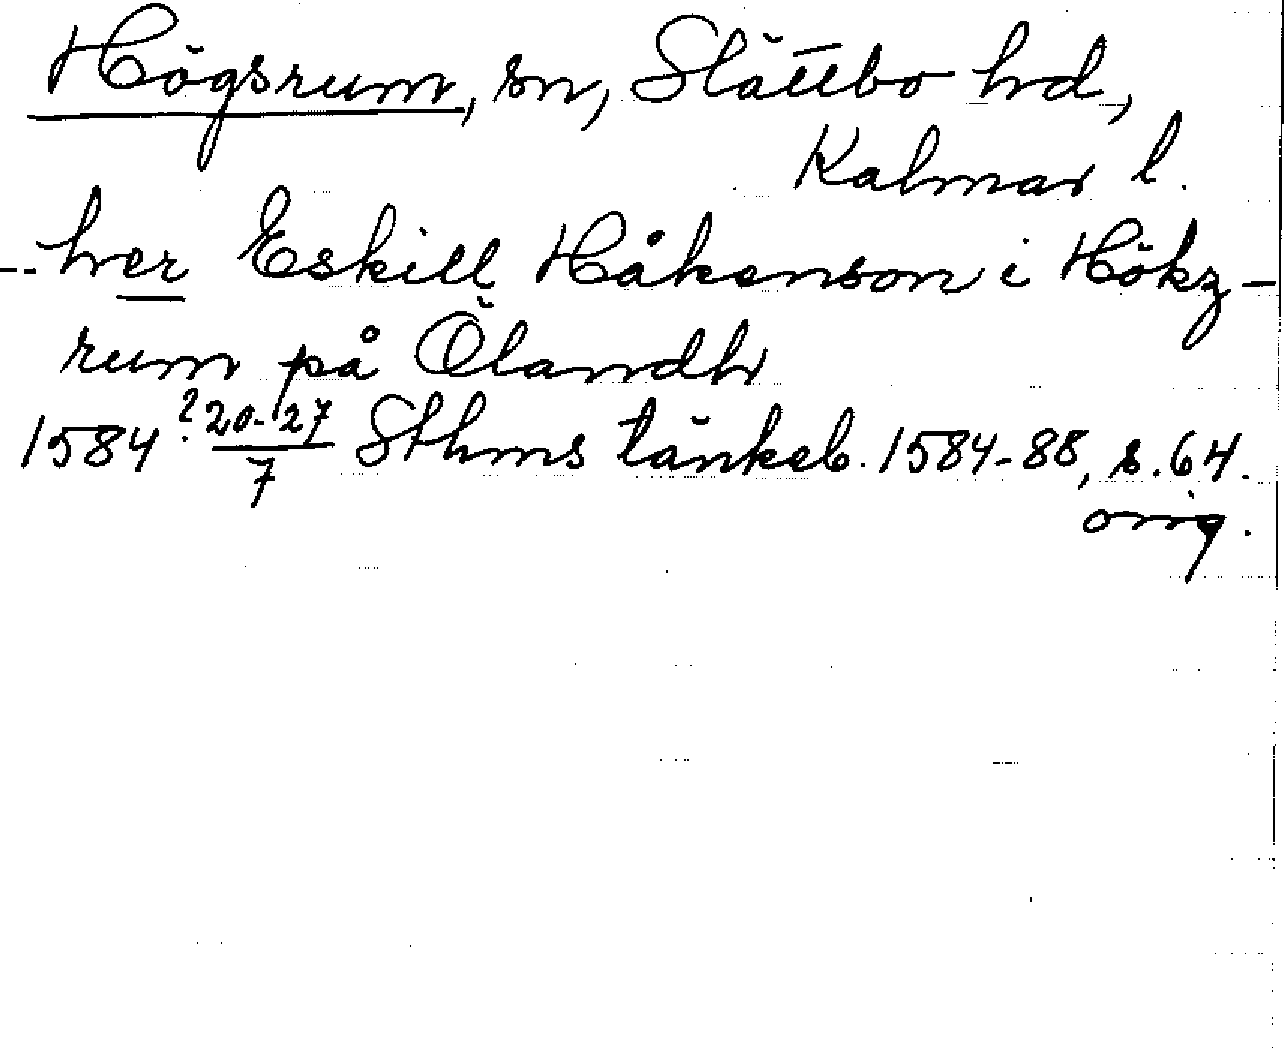 Högsrum, sn, Slättbo hd,
Kalmar l.
-- her Eskill Håkenson i Hökz-
rum på Ölandh
1584 ? 20-27/7 Sthms tänkeb. 1584-88, s. 64.
orig.